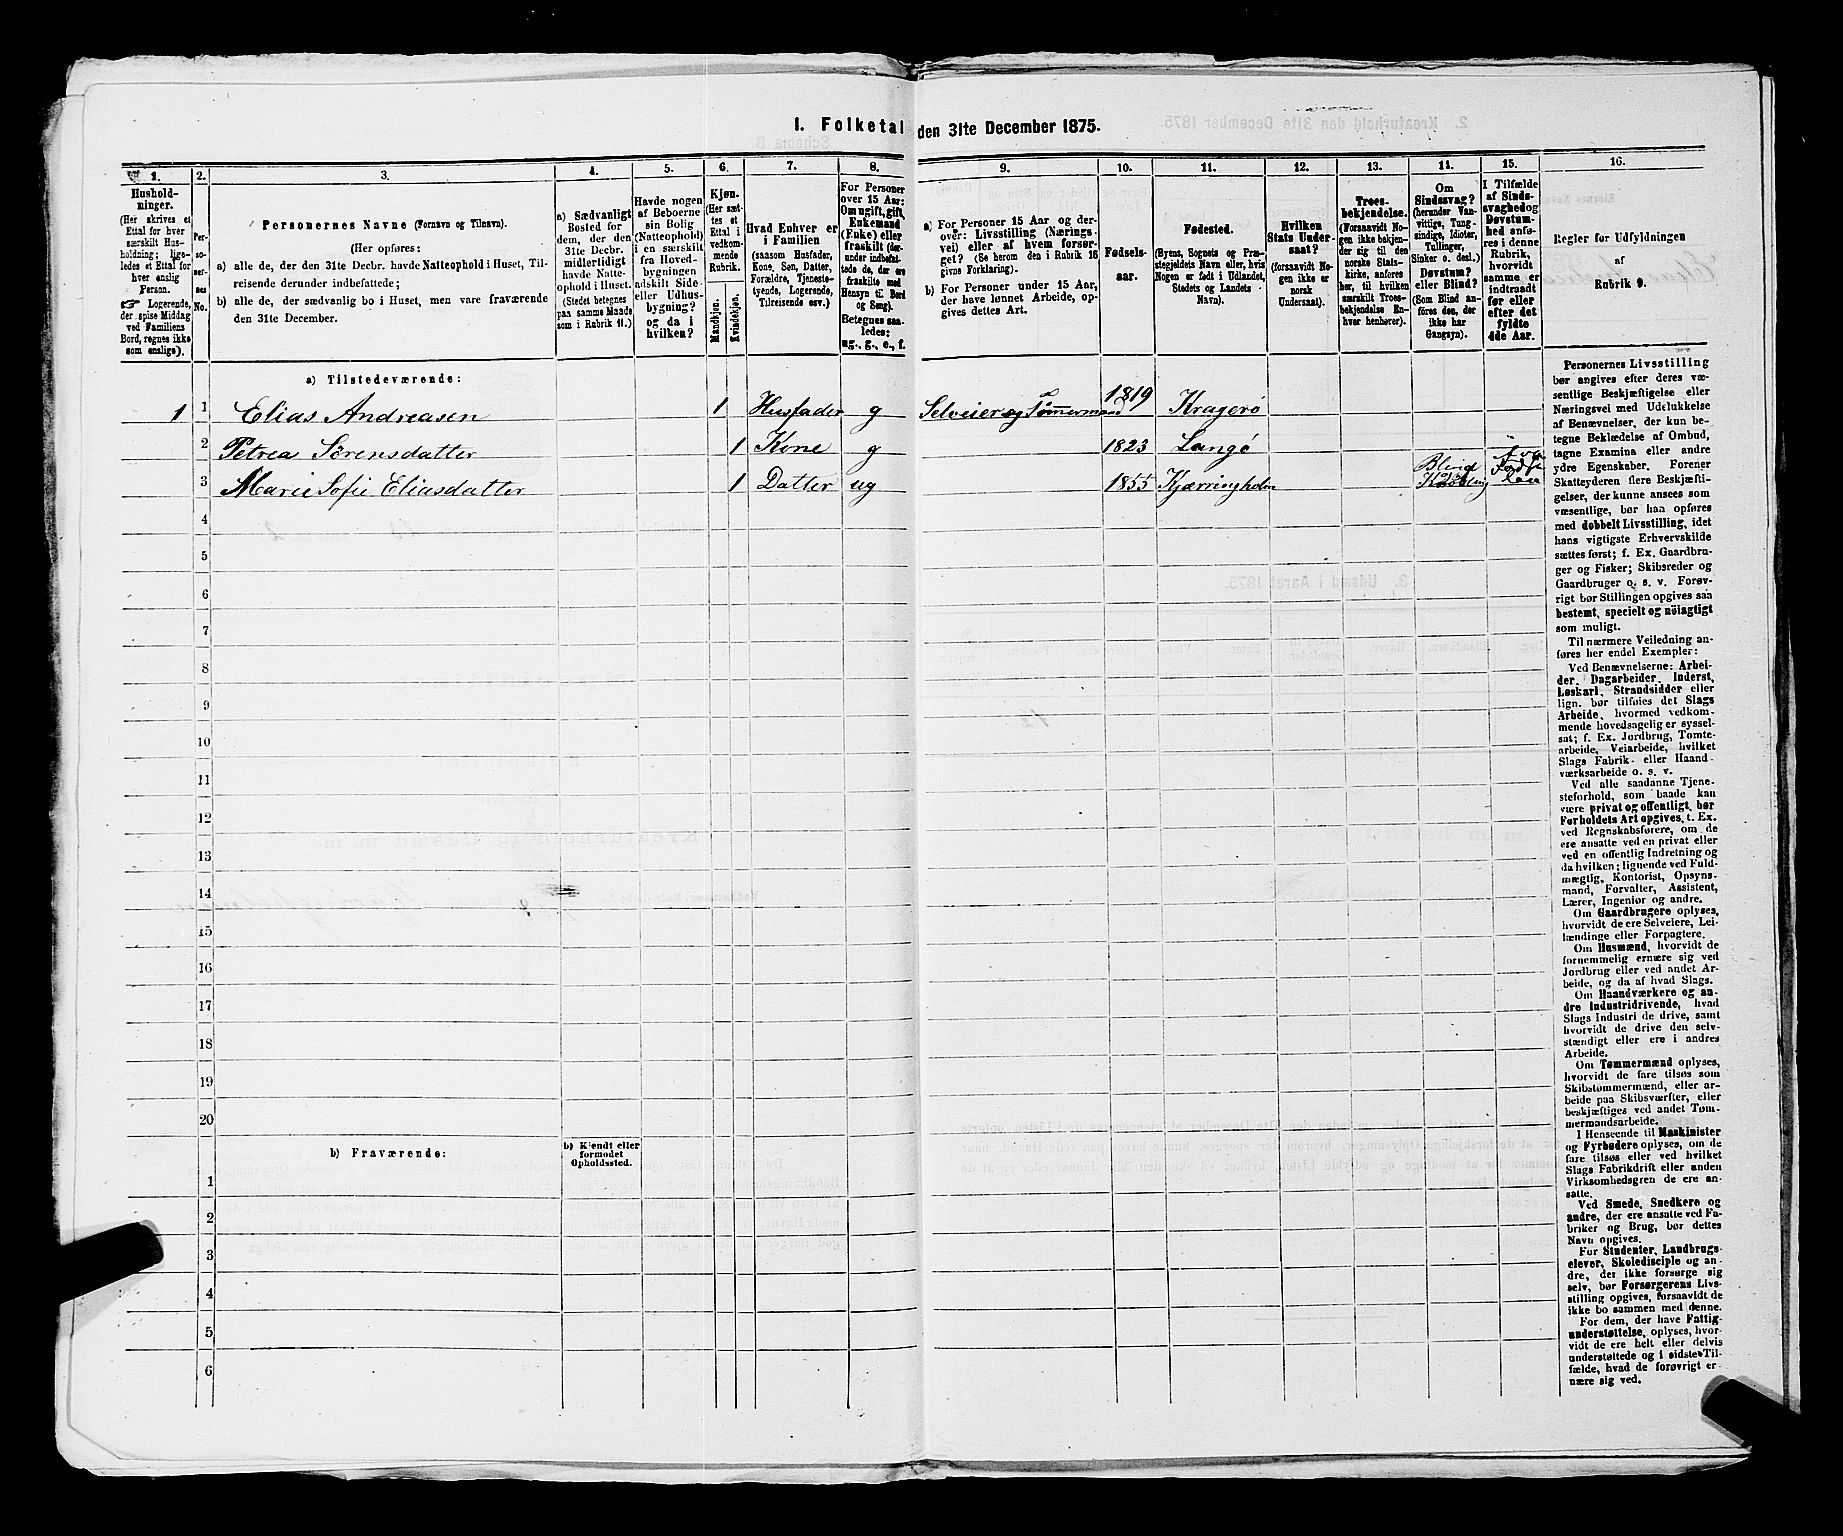 1. Folketal den 31te December 1875.
1. 2. 3. 4. 5. 6. 7. 8. 9. 10. 11. 12. 13. 14. 15. 16.
Hushold-
ninger.
(Her skrives et
Ettal for hver
særskilt Hus-
holdning; lige-
ledes et Ettal for
hver enslig
Person.
☞ Logerende,
der spise Middag
ved Familiens
Bord, regnes ikke
som enslige).
Per-
soner-
nes
No.
Personernes Navne (Fornavn og Tilnavn).
(Her opføres:
a) alle de, der den 31te Decbr. havde Natteophold i Huset, Til-
reisende derunder indbefattede;
b) alle de, der sædvanlig bo i Huset, men vare fraværende
den 31te December.
a) Sædvanligt
Bosted for
dem, der den
31te Decbr.
midlertidigt
havde Natte-
ophold i Huset.
(Stedet betegnes
paa samme Maade
som i Rubrik 11.)
Havde nogen
af Beboerne
sin Bolig
(Natteophold)
i en særskilt
fra Hoved-
bygningen
adskilt Side-
eller Udhus-
bygning?
og da i
hvilken?
Kjøn.
(Her sæt-
tes et
Ettal i
vedkom-
mende
Rubrik.
Mandkjøn.
Kvindekjøn.
Hvad Enhver er
i Familien
(saasom Husfader,
Kone, Søn, Datter,
Forældre, Tjeneste-
tyende, Logerende,
Tilreisende osv.)
For Personer
over 15 Aar:
Om ugift, gift,
Enkemand
(Enke) eller
fraskilt (der-
under indbefat-
tede de, der ere
fraskilte med
Hensyn til Bord
og Seng).
Betegnes saa-
ledes:
ug., g., e., f.
a) For Personer 15 Aar og der-
over: Livsstilling (Nærings-
vei) eller af hvem forsør-
get? (Se herom den i Rubrik 16
givne Forklaring).
b) For Personer under 15 Aar,
der have lønnet Arbeide, op-
gives dettes Art.
Fødsels-
aar.
Fødested.
(Byens, Sognets og Præ-
stegjeldets Navn eller, hvis
Nogen er født i Udlandet,
Stedets og Landets
Navn).
Hvilken
Stats Under-
saat?
(forsaavidt No-
gen ikke er
norsk
Undersaat).
Troes-
bekjendelse.
(Forsaavidt No-
gen ikke bekjen-
der sig til den
norske Stats-
kirke, anføres
her, til hvilken
særskilt Troes-
bekjendelse En-
hver henhører).
Om
Sindssvag?
(herunder Van-
vittige, Tung-
sindige, Idioter,
Tullinger,
Sinker o. desl.)
Døvstum?
eller Blind?
(Som Blind an-
føres den, der
ikke har
Gangsyn).
I Tilfælde
af Sinds-
svaghed og
Døvstum-
hed anfø-
res i denne
Rubrik,
hvorvidt
samme er
indtraadt
før eller
efter det
fyldte
4de Aar.
Regler for Udfyldningen
af
Rubrik 9.
a) Tilstedeværende:
1 1 Elias Andreasen 1 Husfader g Selveier og Tømmermand 1819 Kragerø
2 Petrea Sørensdatter 1 Kone g 1823 Langø
3 Marie Sofie Eliasdatter 1 Datter ug 1855 Kjærringholm Blind
4
5
6
7
8
9
10
11
12
13
14
15
16
17
18
19
20
b) Fraværende:
b) Kjendt eller
formodet
Opholdssted.
1
2
3
4
5
6
Personernes Livsstilling
bør angives efter deres væ-
sentlige Beskjæftigelse eller
Næringsvei med Udelukkelse
af Benævnelser, der kun be-
tegne Beklædelse af Ombud,
tagne Examina eller andre
ydre Egenskaber. Forener
Skatteyderen flere Beskjæfti-
gelser, der kunne ansees som
væsentlige, bør han opføres
med dobbelt Livsstilling, idet
hans vigtigste Erhvervskilde
sættes først; f. Ex. Gaardbru-
ger og Fisker; Skibsreder og
Gaardbruger o. s. v. Forøv-
rigt bør Stillingen opgives saa
bestemt, specielt og nöiagtigt
som muligt.
Til nærmere Veiledning an-
føres her endel Exempler:
Ved Benævnelserne: Arbei-
der, Dagarbeider, Inderst,
Løskarl, Strandsidder eller
lign. bør tilføies det Slags
Arbeide, hvormed vedkom-
mende hovedsagelig er syssel-
sat; f. Ex. Jordbrug, Tomte-
arbeide, Veiarbeide, hvilket
Slags Fabrik- eller Haand-
værksarbeide o. s. v.
Ved alle saadanne Tjene-
steforhold, som baade kan
være privat og offentligt, bør
Forholdets Art opgives, t. Ex.
ved Regnskabsførere, om de
ere ansatte ved en privat eller
ved en offentlig Indretning og
da hvilken; lignende ved Fuld-
mægtig, Kontorist, Opsyns-
mand, Forvalter, Assistent,
Lærer, Ingeniør og andre.
Om Gaardbrugere oplyses,
hvorvidt de ere Selveiere, Lei-
lændinge eller Forpagtere.
Om Husmænd, hvorvidt de
fornemmelig ernære sig ved
Jordbrug eller ved andet Ar-
beide, og da af hvad Slags.
Om Haandværkere og an-
dre Industridrivende, hvad
Slags Industri de drive, samt
hvorvidt de drive den selv-
stændigt eller ere i andres
Arbeide.
Om Tømmermænd oplyses,
hvorvidt de fare tilsøs som
Skibstømmermænd, eller ar-
beide paa Skibsværfter, eller
beskjæftiges ved andet Tøm-
mermandsarbeide.
I Henseende til Maskinister
og Fyrbødere oplyses, om de
fare tilsøs eller ved hvilket
Slags Fabrikdrift eller anden
Virksomhedsgren de ere an-
satte.
Ved Smede, Snedkere og
andre, der ere ansatte ved Fa-
briker og Brug, bør dettes
Navn opgives.
For Studenter, Landbrugs-
elever, Skoledisciple og an-
dre, der ikke forsørge sig
selv, bør Forsørgerens Livs-
stilling opgives, forsaavidt de
ikke bo sammen med denne.
For dem, der have Fattig-
understøttelse, oplyses, hvor-
vidt de ere helt eller delvis
understøttede og i sidste Til-
fælde, hvad de forøvrigt er-
nære sig ved.